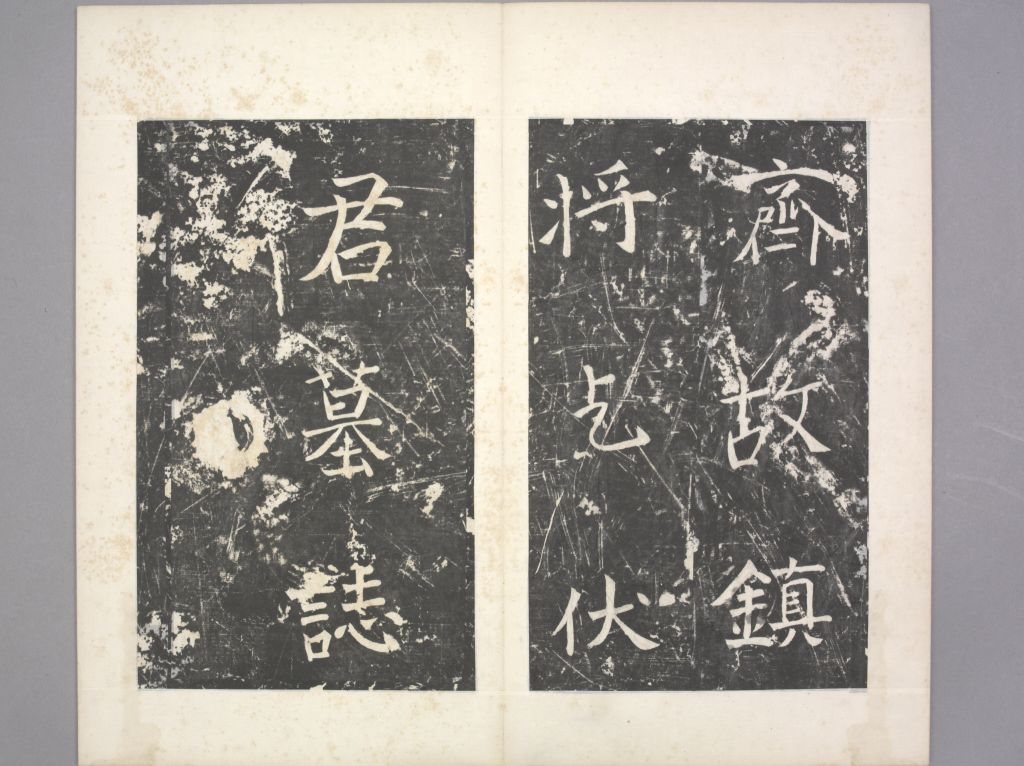 齊故鎮
將乞伏
君墓誌